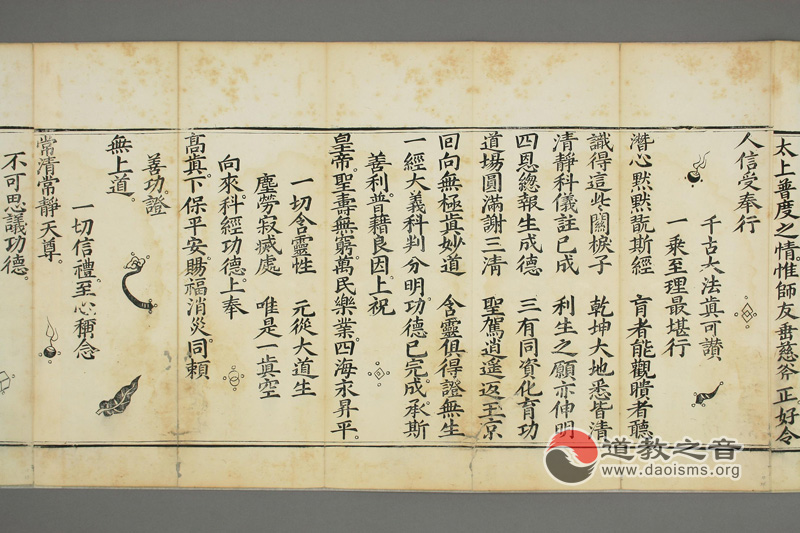 太上普度之情惟師友垂慈斧正好令
人信受奉行
千古大法眞可讃
一乗至理最堪行
潛心黙黙翫斯經 肓者能觀瞶者聽
識得這些關棙子 乾坤大地悉皆清
清靜科儀註已成 利生之願亦伸明
四恩緫報生成德 三有同資化育功
道場圓滿謝三清 聖駕逍遙返玉京
回向無極眞妙道 含靈俱得證無生
一經大義科判分明。功德已完成。承斯
善利普藉良因。上祝
皇帝。聖壽無窮。萬民樂業。四海永昇平。
一切含靈性 元從大道生
塵勞寂滅處 唯是一眞空
向來。科經功德。上奉
高眞。下保平安。賜福消災。同賴
善功。證
無上道。
一切信禮。至心稱念
常清常靜天尊。
不可思議功德。
道教之音
www.daoisms.org